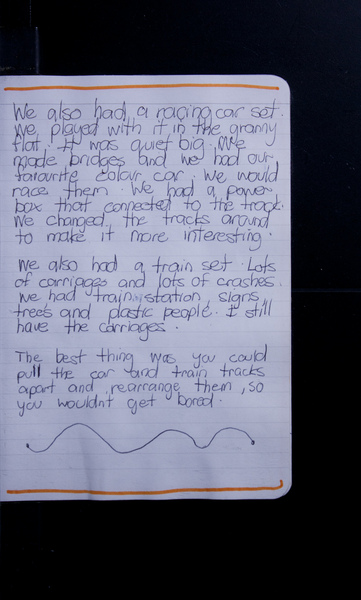 We also had a racing car set.
We played with it in the granny
flat. It was quiet big. We
made bridges and we had our
favourite colour car. We would
race them. We had a power
box that connected to the track.
We changed the tracks around
to make it more interesting.
We also had a train set. Lots
of carriages and lots of crashes.
We had train station, signs,
trees and plastic people. I still
have the carriages.
The best thing was you could
pull the car and train tracks
apart and rearrange them, so
you wouldnt get bored.